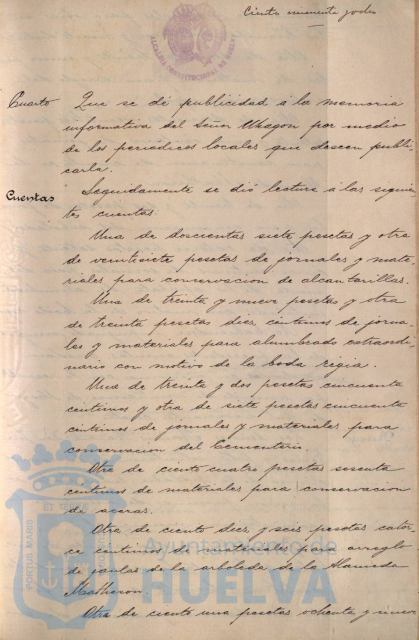 Ciento noventa y dos
Cuarto Que se dé publicidad á la memoria
informativa del Señor por medio
de los periódicos locales que deseen publi
carla.
Cuentas Seguidamente se dió lectura á las siguien
tes cuentas:
Una de doscientas siete pesetas y otra
de veintisiete pesetas de jornales y mate
riales para conservacion de alcantarillas.
Una de treinta y nueve pesetas y otra
de treinta pesetas diez céntimos de jorna
les y materiales para alumbrado extraordi
nario con motivo de la boda regia.
Una de treinta y dos pesetas cincuenta
centimos y otra de siete pesetas cincuenta
centimos de jornales y materiales para
conservacion del Cementerio.
Otra de ciento cuatro pesetas sesenta
centimos de materiales para conservacion
de aceras.
Otra de ciento diez y seis pesetas cator
ce centimos de materiales para arreglo
de jaulas de la arboleda de la Alameda
Matheson.
Otra de ciento una pesetas ochenta y nueve
PORTUS MARIS
Ayuntamiento de
HUELVA